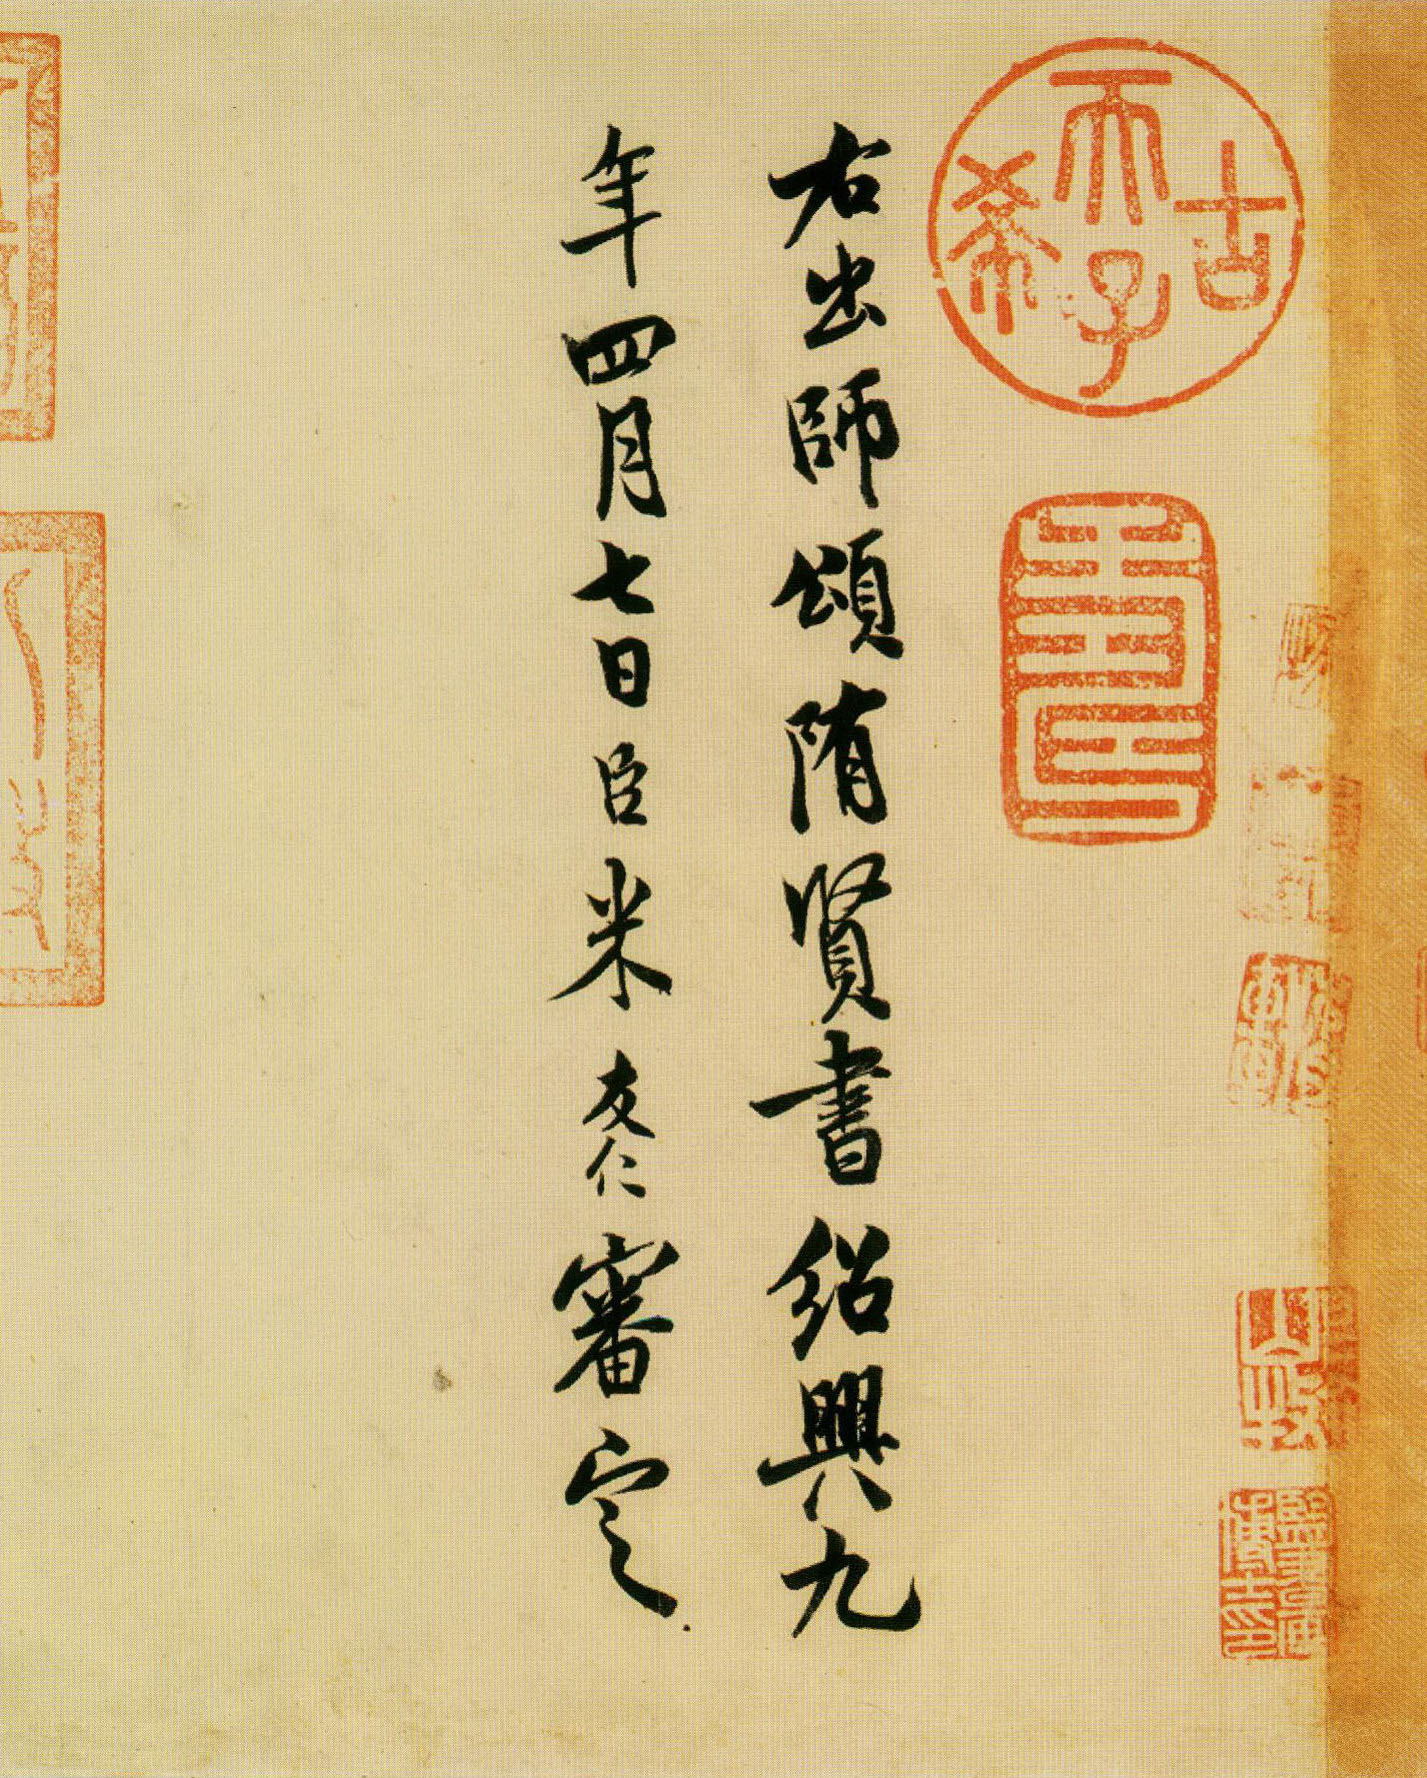 古希天子
壽
右出師頌陏賢書紹興九
年四月七日臣米友仁審定